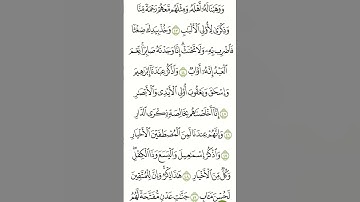 وَوَهَبْنَا لَهُۥٓ أَهْلَهُۥ وَمِثْلَهُم مَّعَهُمْ رَحْمَةً مِّنَّا
وَذِكْرَىٰ لِأُو۟لِى ٱلْأَلْبَـٰبِ ٤٣ وَخُذْ بِيَدِكَ ضِغْثًا
فَٱضْرِب بِّهِۦ وَلَا تَحْنَثْ إِنَّا وَجَدْنَـٰهُ صَابِرًا نِّعْمَ
ٱلْعَبْدُ إِنَّهُۥٓ أَوَّابٌ ٤٤ وَٱذْكُرْ عِبَـٰدَنَآ إِبْرَٰهِيمَ
وَإِسْحَـٰقَ وَيَعْقُوبَ أُو۟لِى ٱلْأَيْدِى وَٱلْأَبْصَـٰرِ
٤٥ إِنَّآ أَخْلَصْنَـٰهُم بِخَالِصَةٍ ذِكْرَى ٱلدَّارِ
٤٦ وَإِنَّهُمْ عِندَنَا لَمِنَ ٱلْمُصْطَفَيْنَ ٱلْأَخْيَارِ
٤٧ وَٱذْكُرْ إِسْمَـٰعِيلَ وَٱلْيَسَعَ وَذَا ٱلْكِفْلِ
وَكُلٌّ مِّنَ ٱلْأَخْيَارِ ٤٨ هَـٰذَا ذِكْرٌ وَإِنَّ لِلْمُتَّقِينَ
لَحُسْنَ مَـَٔابٍ ٤٩ جَنَّـٰتِ عَدْنٍ مُّفَتَّحَةً لَّهُمُ